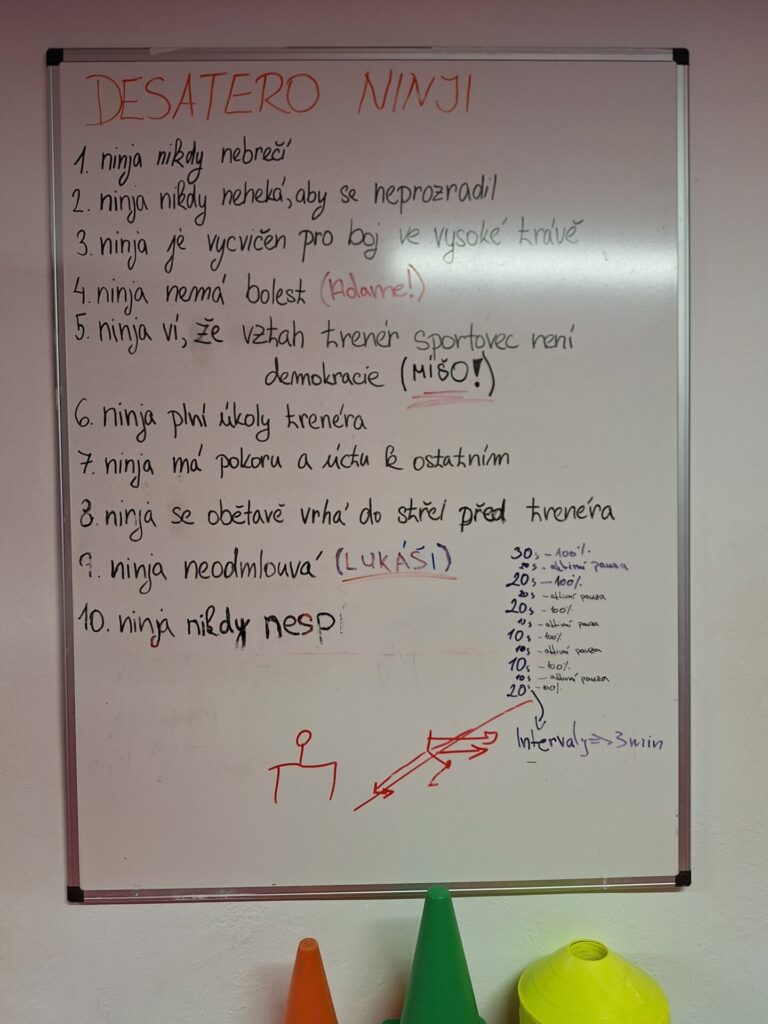 DESATERO NINJI
1. ninja nikdy nebrečí
2. ninja nikdy neheká, aby se neprozradil
3. ninja je vycvičen pro boj ve vysoké trávě
4. ninja nemá bolest (Adame!)
5. ninja ví, že vztah trenér sportovec není
demokracie (MÍŠO!)
6. ninja plní úkoly trenéra
7. ninja má pokoru a úctu k ostatním
8. ninja se obětavě vrhá do střel před trenéra
9. ninja neodmlouvá (LUKÁŠI)
10. ninja nikdy nespí
30s - 100%
20s - aktivní pauza
20s - 100%
20s - aktivní pauza
20s - 100%
10s - aktivní pauza
10s - 100%
10s - aktivní pauza
10s - 100%
10s - aktivní pauza
20s - 100%
Intervaly => 3 min